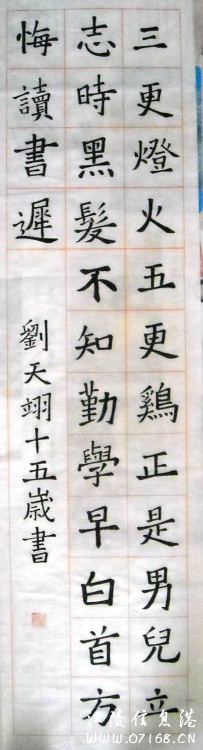 三更燈火五更鷄正是男兒立
志時黑髮不知勤學早白首方
悔讀書遲
劉天翊十五歲書
江陵信息港
www.07168.CN